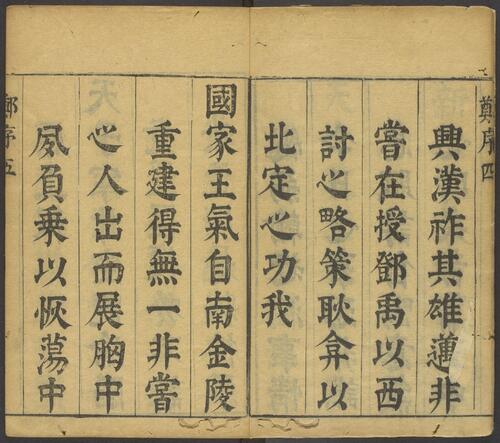 鄭序四
興漢祚其雄邁非
嘗在授鄧禹以西
討之略策耿弇以
北定之功我
國家王氣自南金陵
重建得無一非嘗
之人出而展胸中
夙負乘以恢蕩中
鄭序五